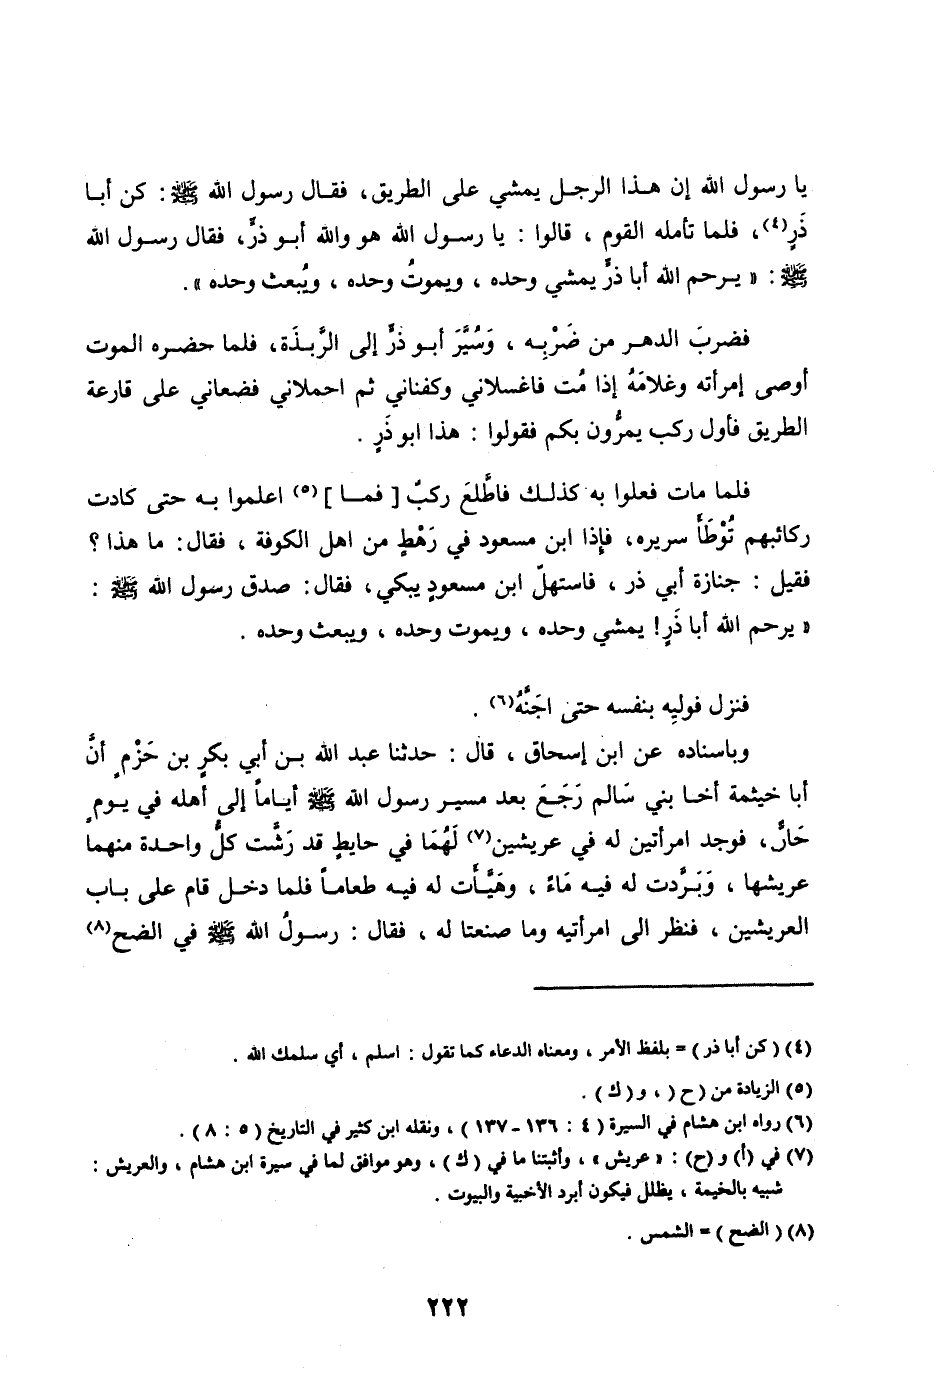 يا رسول الله إن هذا الرجل يمشي على الطريق، فقال رسول الله ﷺ: كن أبا
ذَرٍ(٤)، فلما تأمله القوم ، قالوا : يا رسول الله هو والله أبو ذرٍّ، فقال رسول الله
ﷺ : « يرحم الله أبا ذرٍّ يمشي وحده ، ويموتُ وحده ، ويُبعث وحده ».
فضربَ الدهر من ضَرْبِه ، وَسُيَّرَ أبو ذرٍّ إلى الرَّبذَة، فلما حضره الموت
أوصى إمرأته وغلامَهُ إذا مُت فاغسلاني وكفناني ثم احملاني فضعاني على قارعة
الطريق فأول ركب يمرُّون بكم فقولوا : هذا ابو ذَرٍ .
فلما مات فعلوا به كذلك فاطَّلعَ ركبٌ [ فما ] (٥) اعلموا به حتى كادت
ركائبهم تُوْطَأَ سريره، فإذا ابن مسعود في رَهْطٍ من اهل الكوفة ، فقال: ما هذا ؟
فقيل : جنازة أبي ذر ، فاستهلّ ابن مسعودٍ يبكي، فقال: صدق رسول الله ﷺ :
« يرحم الله أبا ذَرٍ! يمشي وحده ، ويموت وحده ، ويبعث وحده .
فنزل فوليِه بنفسه حتى اجَنَّهُ(٦) .
وباسناده عن ابن إسحاق ، قال : حدثنا عبد الله بن أبي بكرٍ بن حَزْمٍ أنَّ
أبا خيثمة أخا بني سَالم رَجَعَ بعد مسير رسول الله ﷺ أياماً إلى أهله في يومٍ
حَارٍّ، فوجد امرأتين له في عريشين(٧) لَهُمَا في حايطٍ قد رَشَّت كلُّ واحدة منهما
عريشها ، وَبَرَّدت له فيه مَاءً ، وهَيَّأَت له فيه طعاماً فلما دخل قام على باب
العريشين ، فنظر الى امرأتيه وما صنعتا له ، فقال : رسولُ الله ﷺ في الضح(٨)
(٤) ( كن أبا ذر ) = بلفظ الأمر ، ومعناه الدعاء كما تقول : اسلم ، أي سلمك الله .
(٥) الزيادة من (ح( ، و( ك) .
(٦) رواه ابن هشام في السيرة ( ٤ : ١٣٦ - ١٣٧ ) ، ونقله ابن كثير في التاريخ ( ٥ : ٨ ) .
(٧) في (أ) و (ح) : « عريش » ، وأثبتنا ما في ( ك ) ، وهو موافق لما في سيرة ابن هشام ، والعريش :
شبيه بالخيمة ، يظلل فيكون أبرد الأخبية والبيوت .
(٨) ( الضح ) = الشمس .
٢٢٢